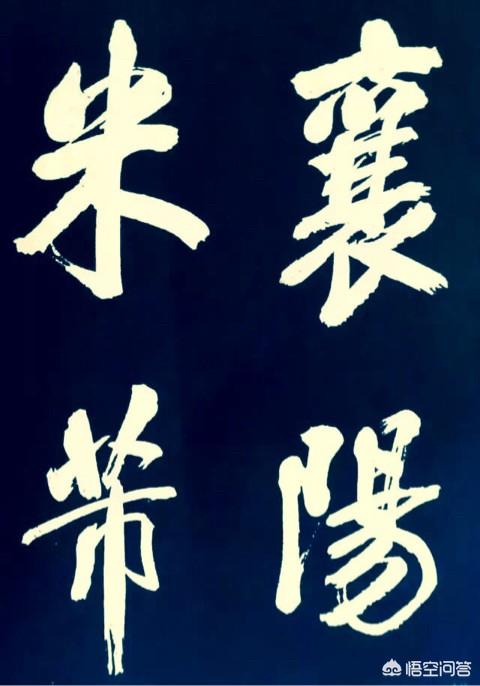 襄陽
米芾
悟空问答